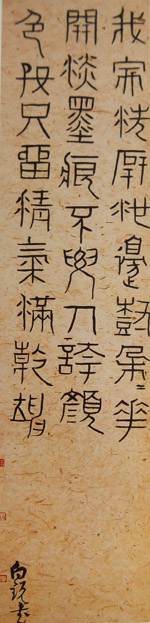 我家洗研池邊樹朵〻華
開淡墨痕不要人誇顏
色好只留清氣滿乾坤